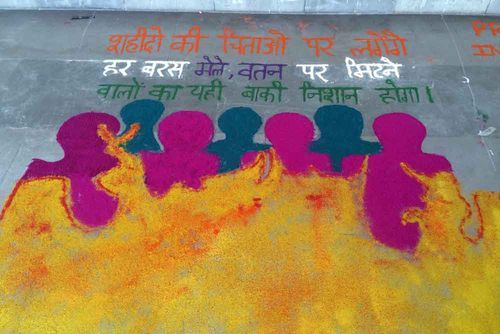 शहीदो की चिताओ पर लगेंगे
हर बरस मेले, वतन पर मिटने
वालो का यही बाकी निशान होगा।